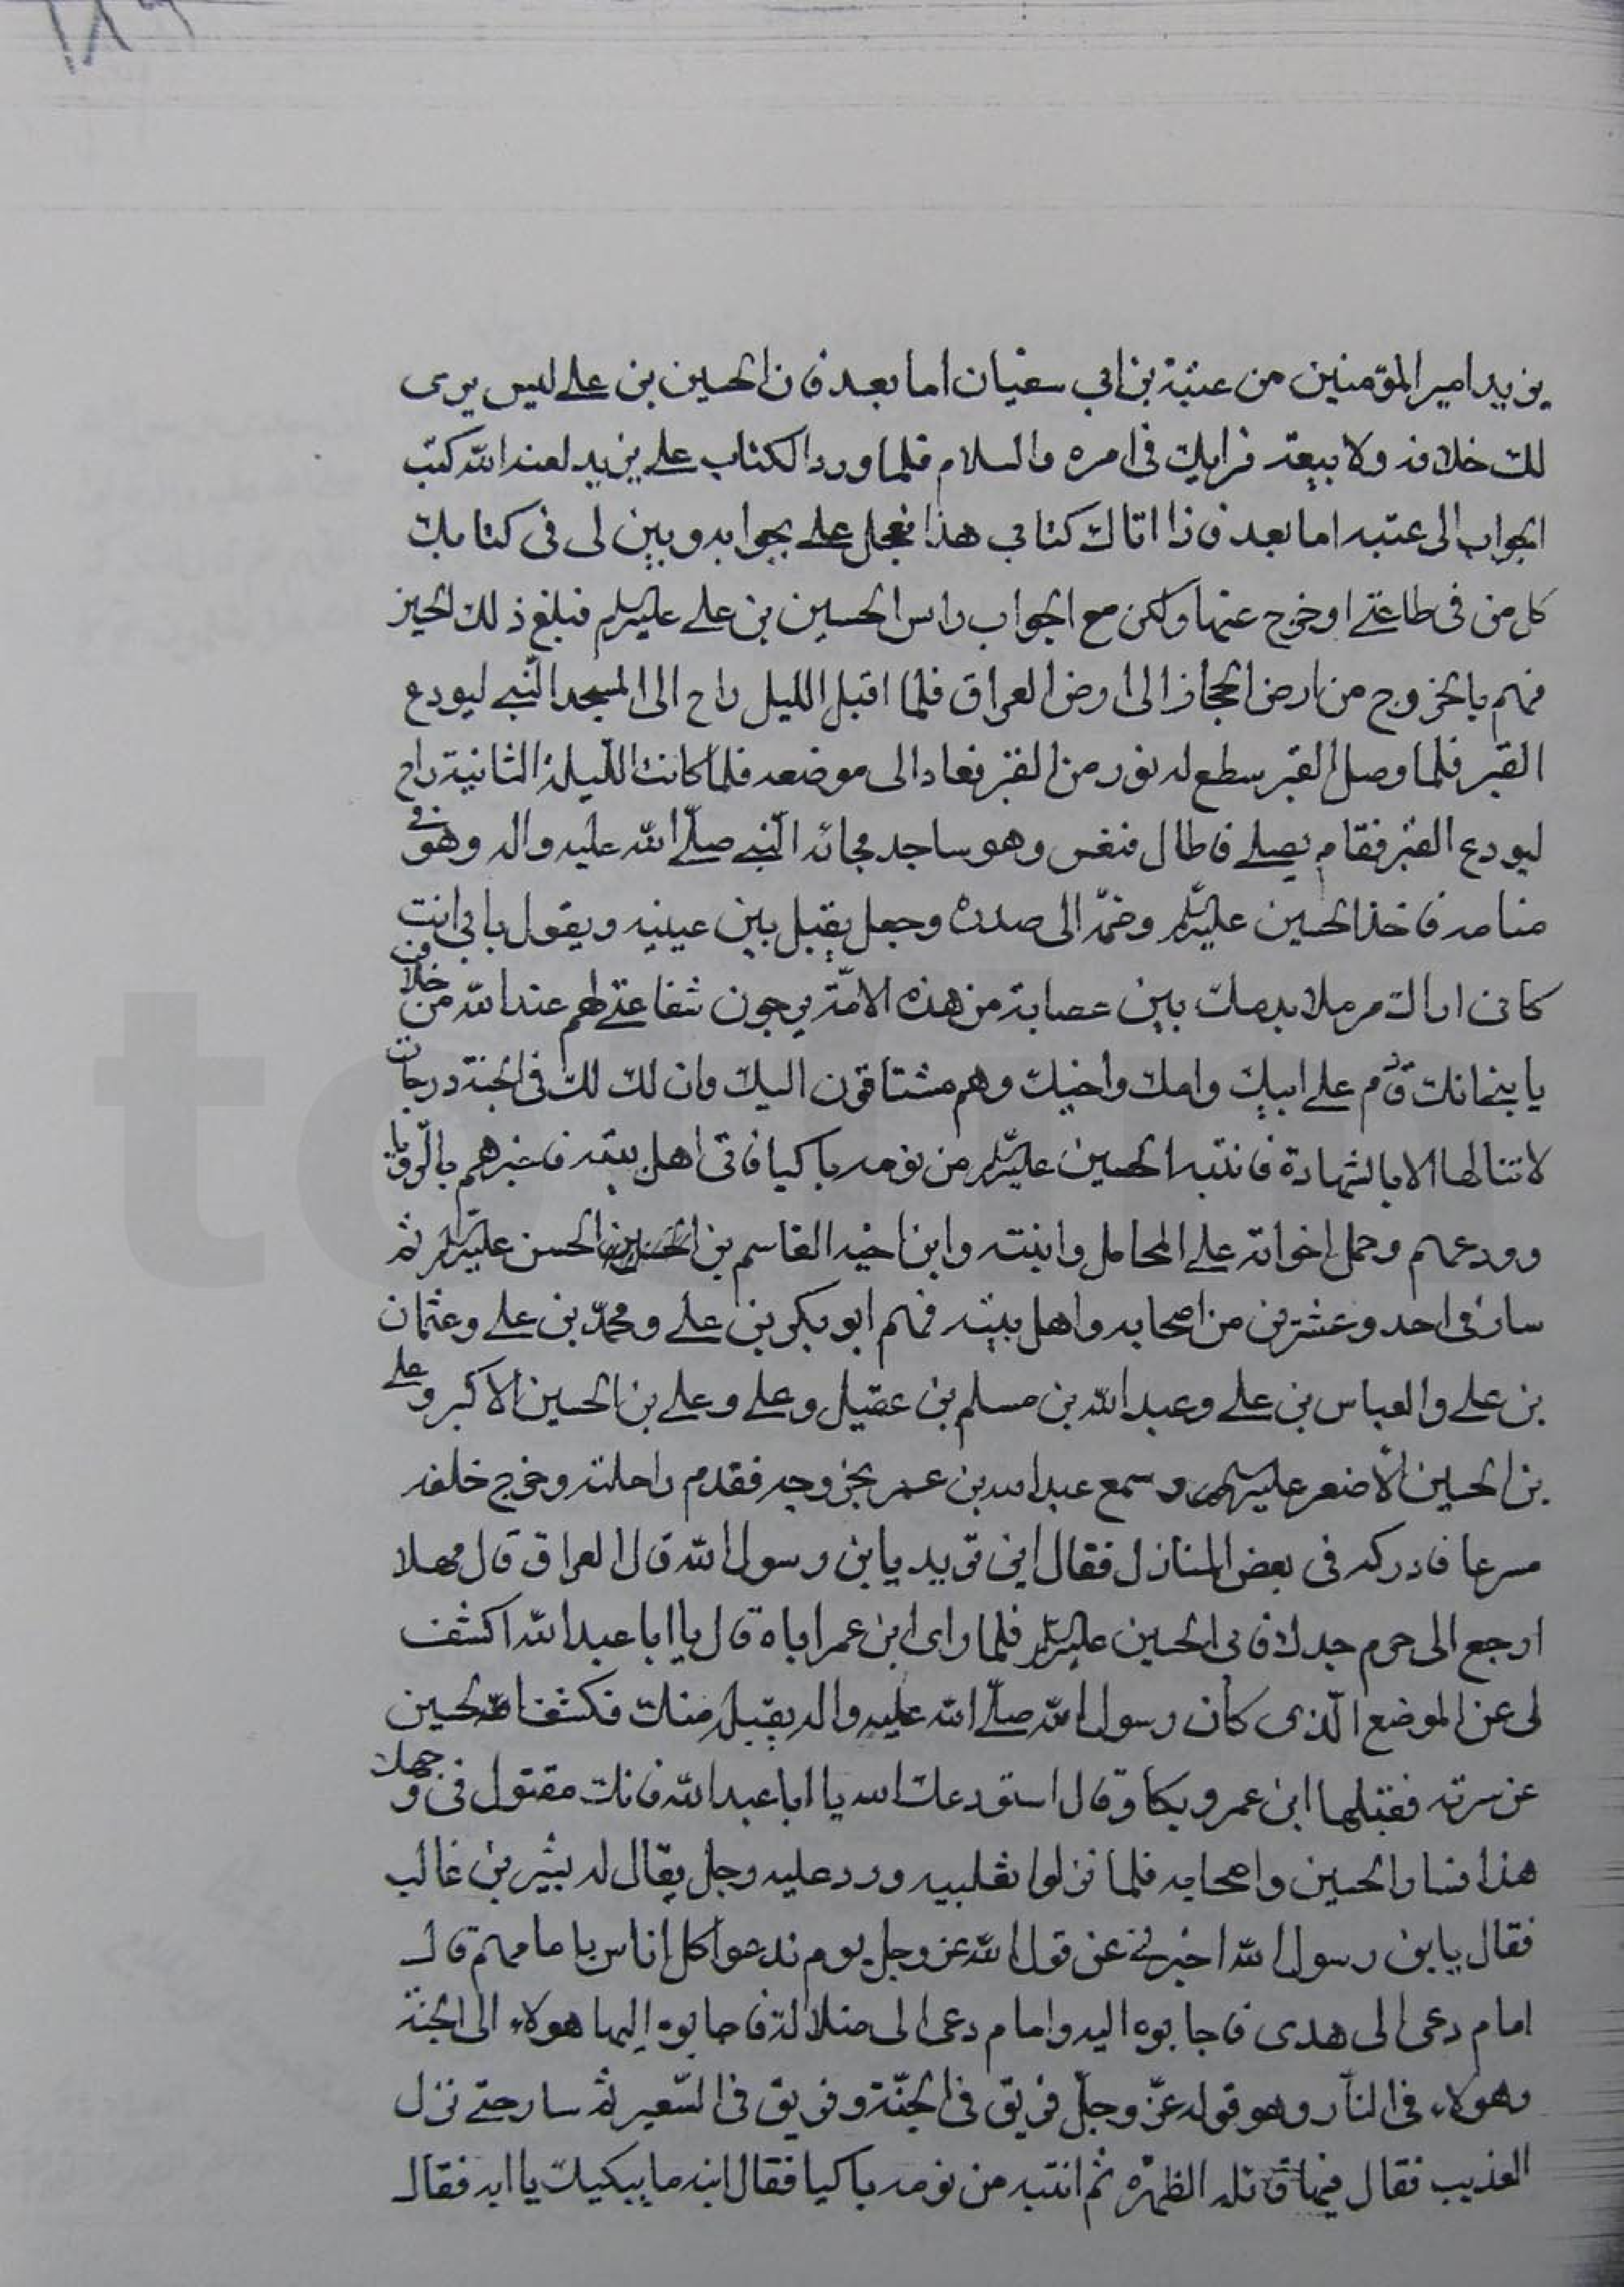 يزيد امير المؤمنين من عتبة بن ابي سفيان اما بعد فان الحسين بن علي ليس يرى
لك خلافة ولا بيعة فرايك في امره والسلام فلما ورد الكتاب علي يزيد لعنه الله كتب
الجواب الى عتبه اما بعد فاذا اتاك كتابي هذا فعجل علي بجوابه وبين لي في كتابك
كل من في طاعتي او خرج عنها وليكن مع الجواب راس الحسين بن علي عليه السلم فبلغ ذلك الحسين
فهم بالخروج من ارض الحجاز الى ارض العراق فلما اقبل الليل راح الى المسجد النبي ليودع
القبر فلما وصل القبر سطع له نور من القبر فعاد الى موضعه فلما كانت الليلة الثانية راح
ليودع القبر فقام يصلي فاطال فنعس وهو ساجد فجائه النّبي صلّى الله عليه واله وهو في
منامه فاخذ الحسين عليه السّلم وضمّه الى صدره وجعل يقبل بين عينيه ويقول بابي انت
كاني اراك مرملا بدمك بين عصابة من هذه الامّة يرجون شفاعتي لهم عند الله من خلاق
يا بني انك قادم علي ابيك وامك واخيك وهم مشتاقون اليك وان لك لك في الجنة درجات
لا تنالها الا بالشهادة فانتبه الحسين عليه السّلم من نومه باكيا فاتى اهل بيته فاخبرهم بالرّويا
وودعهم وحمل اخواته علي المحامل وابنته وابن اخيه القاسم بن الحسن عليه السلم ثم
سار في احد وعشرين من اصحابه واهل بيته فمنهم ابو بكر بن علي ومحمّد بن علي وعثمان
بن علي والعباس بن علي وعبد الله بن مسلم بن عقيل وعلي وعلي بن الحسين الاكبر وعلي
بن الحسين الأضغر عليهم السلم وسمع عبد الله بن عمر بخروجه فقدم راحلته وخرج خلفه
مسرعا فادركه في بعض المنازل فقال اين تريد يابن رسول الله قال العراق قال مهلا
ارجع الى حرم جدك فابى الحسين عليه السّلم فلما راى ابن عمر اباه قال يا ابا عبد الله اكشف
لى عن الموضع الّذى كان رسول الله صلّى الله عليه واله يقبله منك فكشف له الحسين
عن سرته فقبلها ابن عمر وبكا وقال استودعك الله يا ابا عبد الله فانك مقتول في وجهك
هذا فسار الحسين واصحابه فلما نزلوا ثعلبيه ورد عليه رجل يقال له بشير بن غالب
فقال يابن رسول الله اخبرني عن قول الله عز وجل يوم ندعوا كل اناس بامامهم قال
امام دعى الى هدى فاجابوه اليه وامام دعى الى ضلالة فاجابوه اليها هولاء الى الجنة
وهولاء في النّار وهو قوله عزّ وجلّ فريق في الجنّة وفريق في السّعير ثم سار حتى نزل
العذيب فقال فيها قائلة الظهرة ثم انتبه من نومه باكيا فقال ابنه ما يبكيك يا ابه فقال